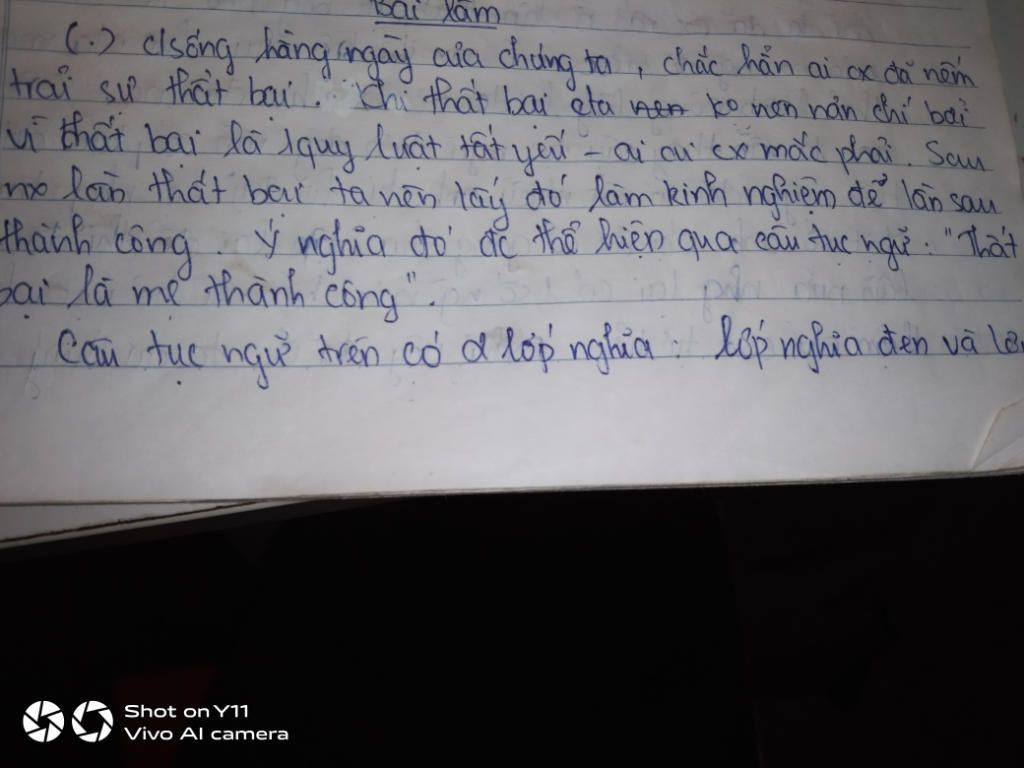 Bài làm
(.) c/sống hàng ngày của chúng ta, chắc hẳn ai cx đã nếm
trải sự thất bại. Khi thất bại cta nen ko nen nản chí bởi
vì thất bại là 1 quy luật tất yếu - ai cũ cx mắc phải. Sau
mx lần thất bại ta nên lấy đó làm kinh nghiệm để lần sau
thành công. Ý nghĩa đó đc thể hiện qua câu tục ngữ: "Thất
bại là mẹ thành công".
Câu tục ngữ trên có 2 lớp nghĩa: lớp nghĩa đen và
Shot on Y11
Vivo AI camera